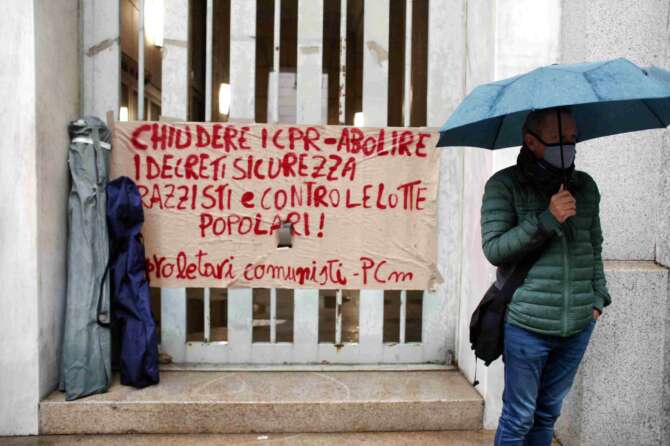 CHIUDERE I CPR-ABOLIRE
I DECRETI SICUREZZA
RAZZISTI e CONTRO LE LOTTE
POPOLARI!
proletari comunisti-PCm